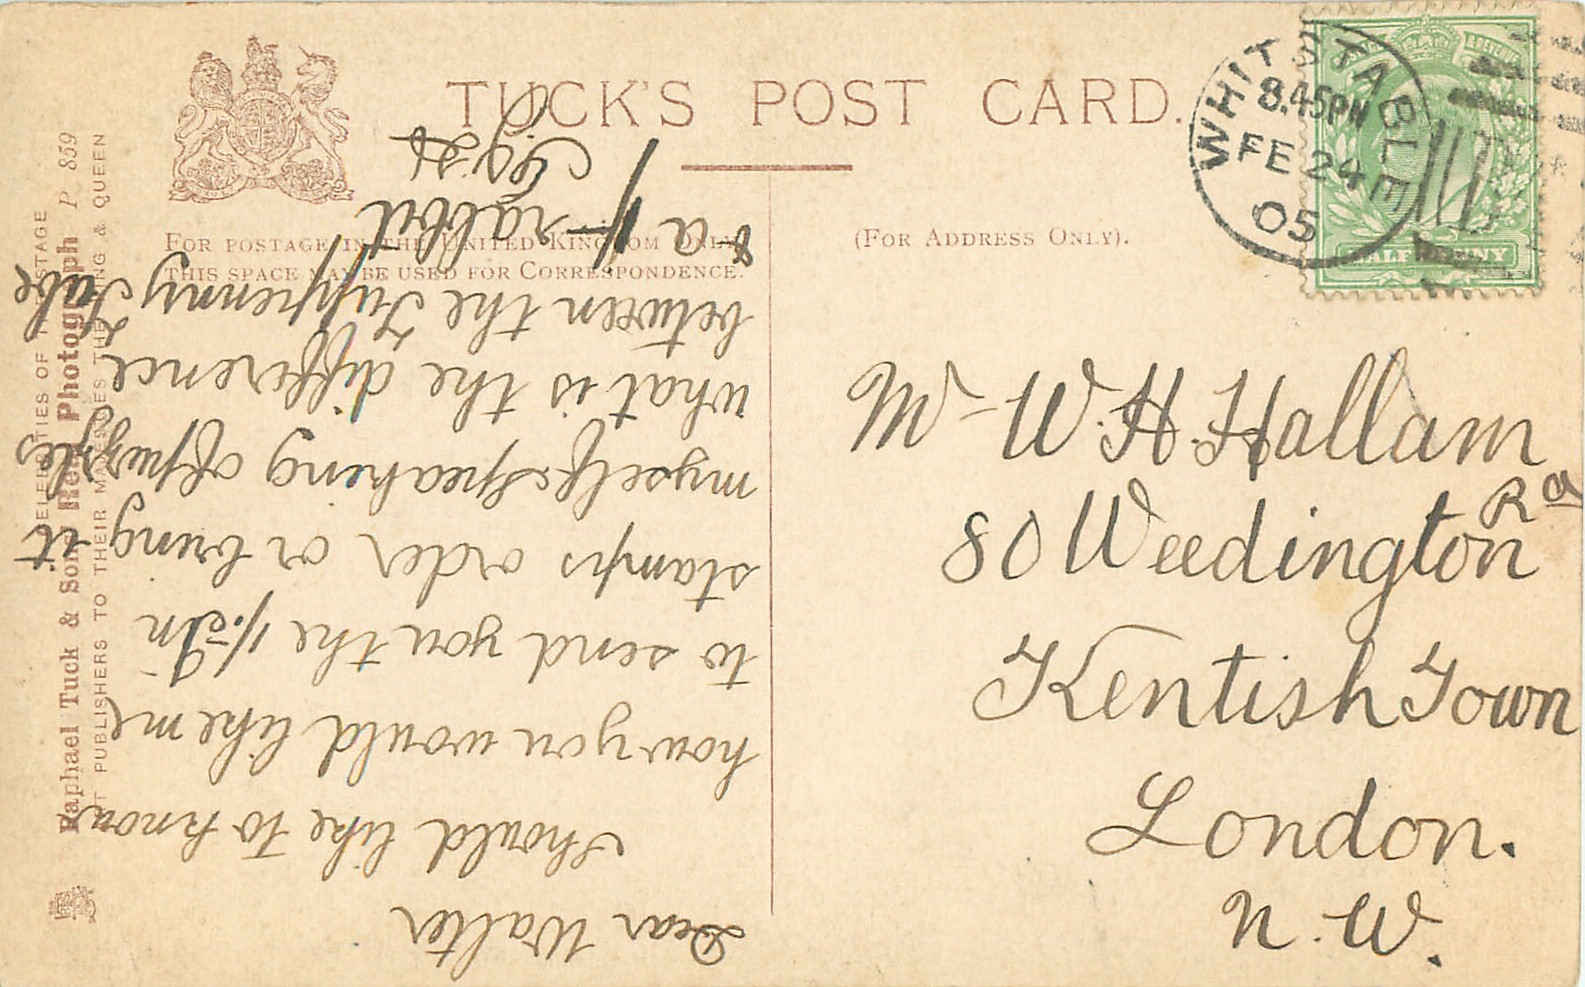 TUCK'S POST CARD.
FOR POSTAGE IN THE UNITED KINGDOM ONLY
THIS SPACE MAY BE USED FOR CORRESPONDENCE.
(FOR ADDRESS ONLY).
WHITSTABLE
8.45PM
FE 24
05
HALFPENNY
Mr W. H. Hallam
80 Weedington Rd
Kentish Town
London.
N. W.
Dear Walter
Should like to know
how you would like me
to send you the 1/. In
stamps order or bring it
myself. Speaking of puzzles
what is the difference
between the Tuppenny Tube
& a rabbit
CELEBRITIES OF THE STAGE
Raphael Tuck & Sons Real Photograph P 859
ART PUBLISHERS TO THEIR MAJESTIES THE KING & QUEEN